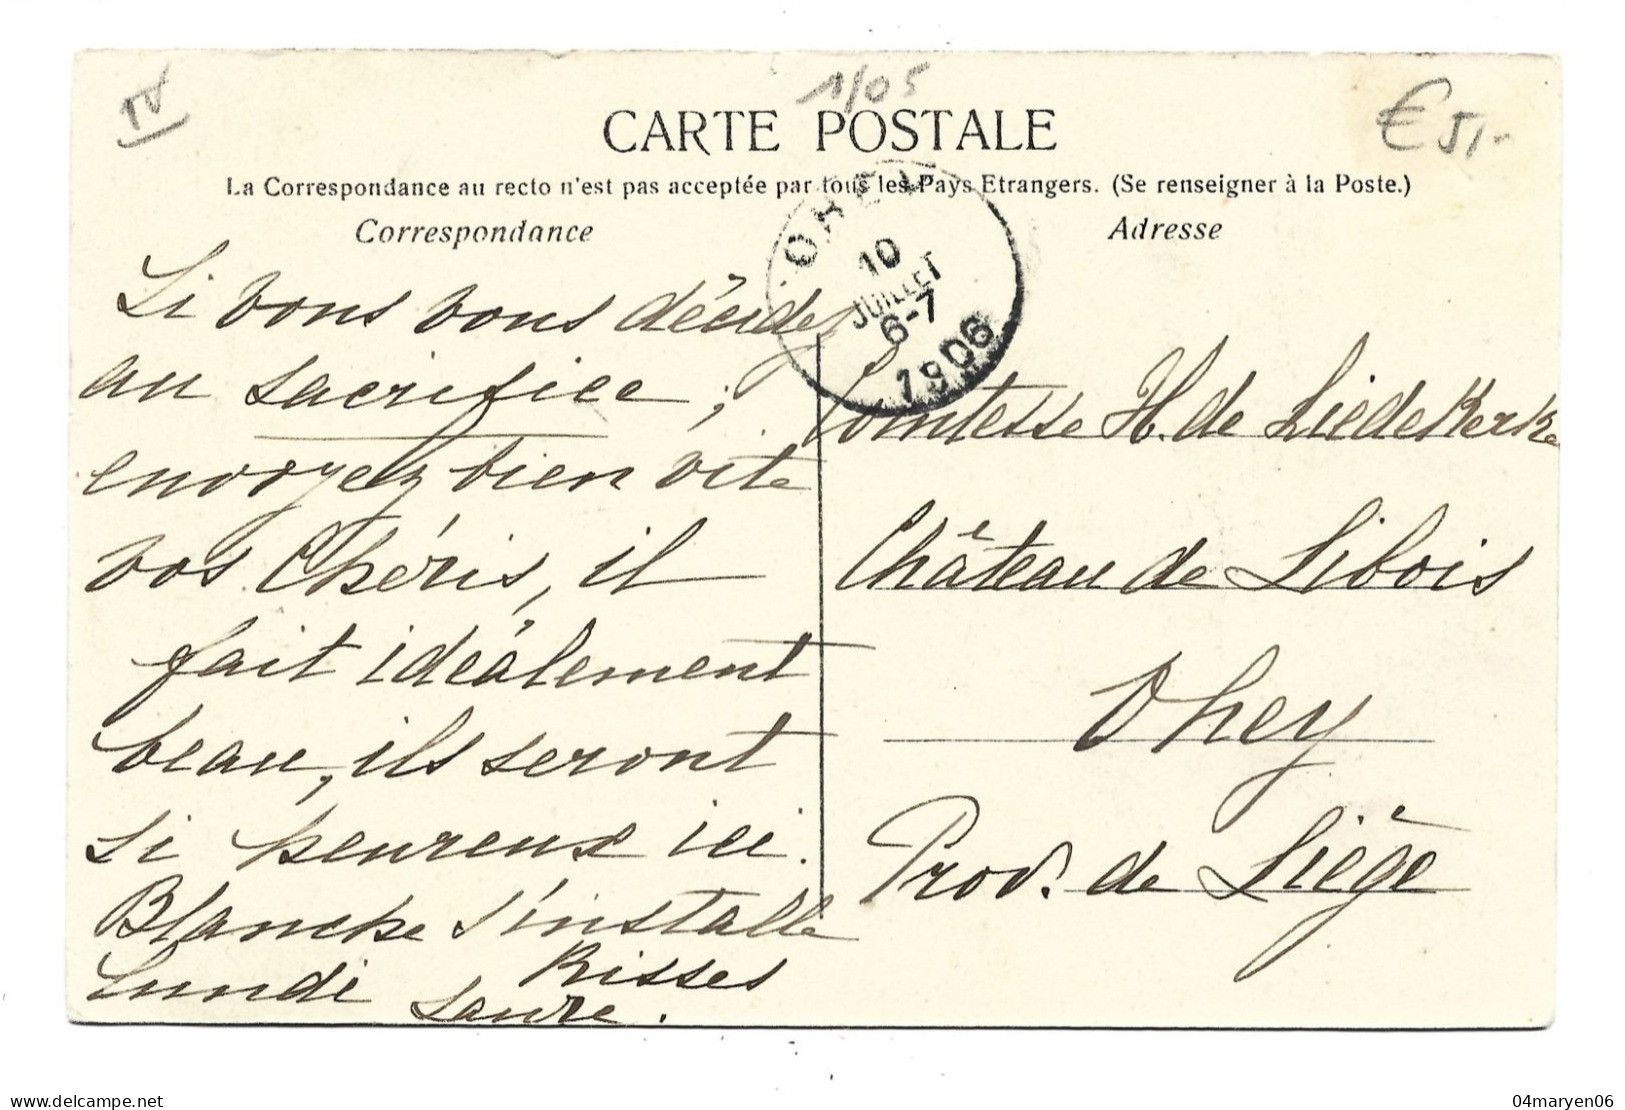 IV
1/05
€ 51-
CARTE POSTALE
La Correspondance au recto n'est pas acceptée par tous les Pays Etrangers. (Se renseigner à la Poste.)
Correspondance
Adresse
OHEY
10
JUILLET
6-7
1906
Si vous vous décidez
au sacrifice ;
envoyez bien vite
vos Chéris, il
fait idéalement
beau, ils seront
si heureux ici.
Blanche s'installe
Lundi Bisses
Laure.
Comtesse H. de Liedekerke
Château de Libois
Ohey
Prov. de Liège
04maryen06